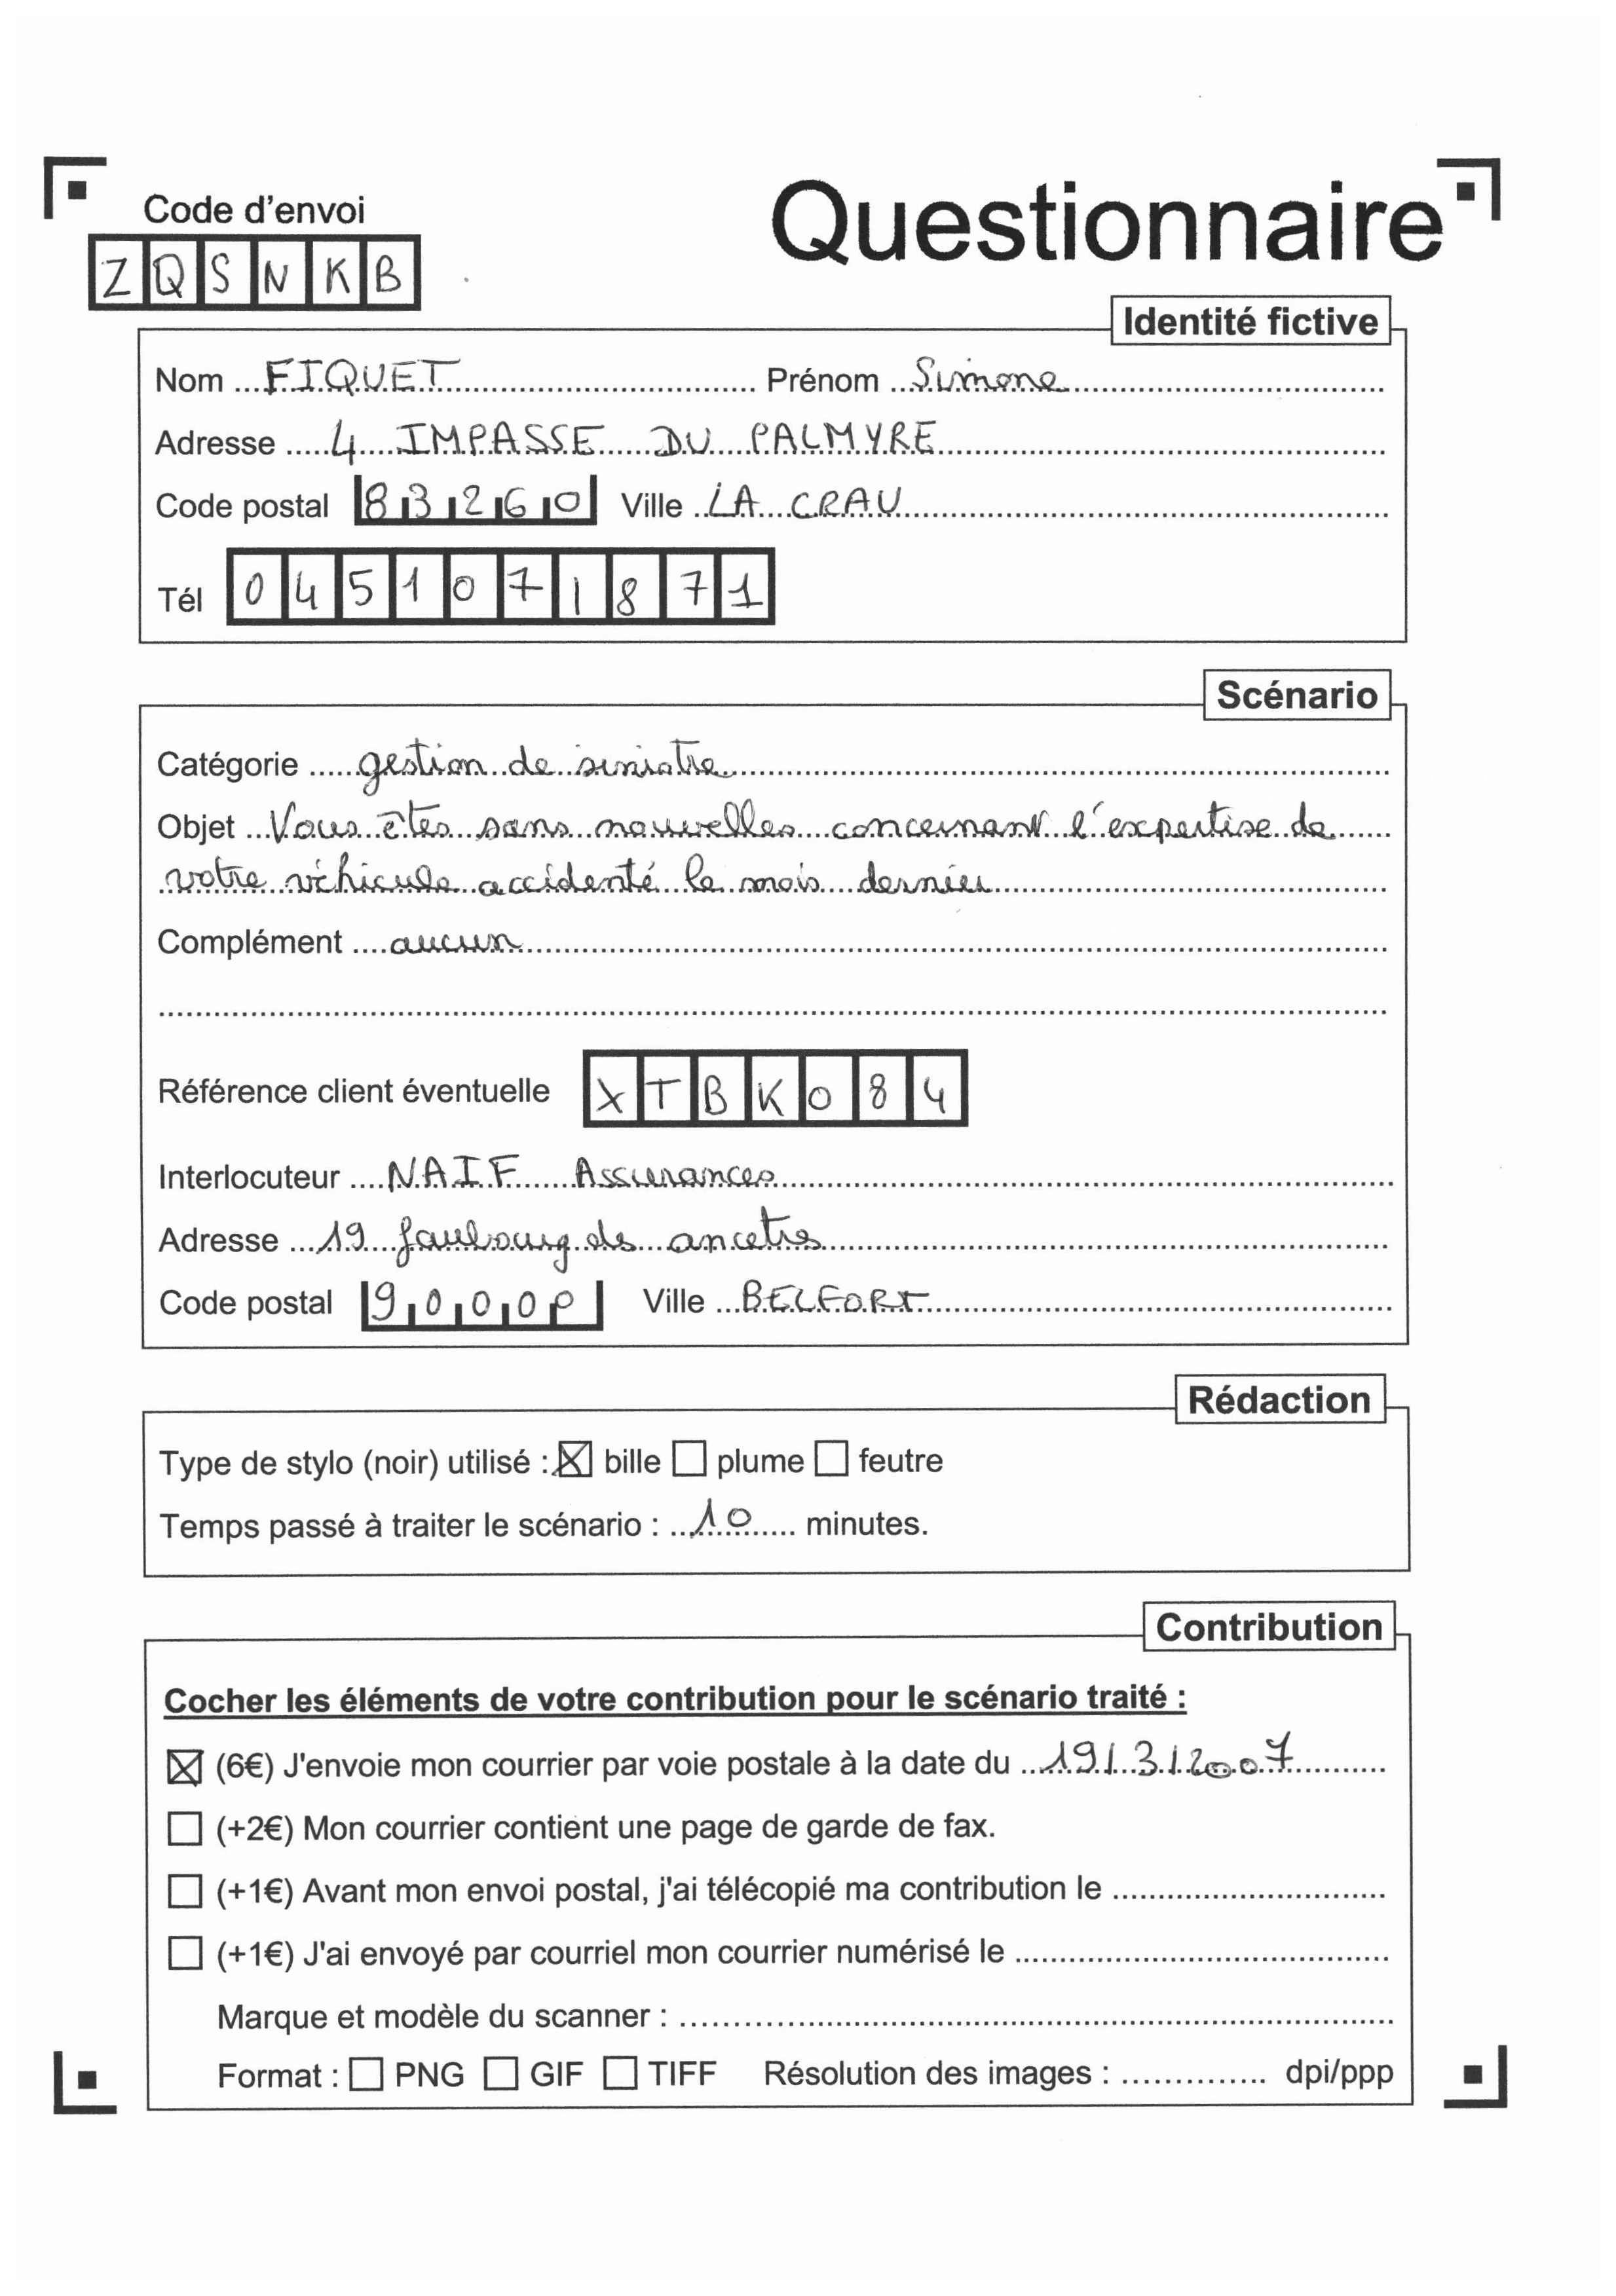 Code d'envoi
Questionnaire
ZQSNKB
Identité fictive
Nom FIQUET Prénom Simone
Adresse 4 IMPASSE DU PALMYRE
Code postal 83260 Ville LA CRAU
Tél 0451071871
Scénario
Catégorie gestion de sinistre
Objet Vous êtes sans nouvelles concernant l'expertise de
votre véhicule accidenté le mois dernier
Complément aucun
Référence client éventuelle XTBK084
Interlocuteur NAIF Assurances
Adresse 19 faubourg des ancetres
Code postal 90000 Ville BELFORT
Rédaction
Type de stylo (noir) utilisé : ☒ bille ☐ plume ☐ feutre
Temps passé à traiter le scénario : 10 minutes.
Contribution
Cocher les éléments de votre contribution pour le scénario traité :
☒ (6€) J'envoie mon courrier par voie postale à la date du 19/3/2007
☐ (+2€) Mon courrier contient une page de garde de fax.
☐ (+1€) Avant mon envoi postal, j'ai télécopié ma contribution le
☐ (+1€) J'ai envoyé par courriel mon courrier numérisé le
Marque et modèle du scanner :
Format : ☐ PNG ☐ GIF ☐ TIFF Résolution des images : dpi/ppp